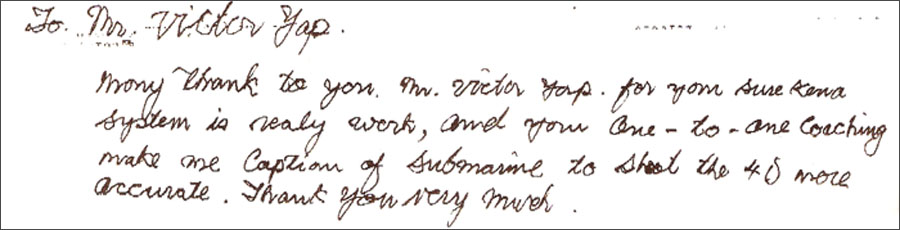 To. Mr. Victor Yap.
Mony Thank to you. Mr. Victor Yap. for your sure kena
system is realy work, and your One-to-one Coaching
make me Caption of submarine to shoot the 4D more
accurate. Thank you very much.